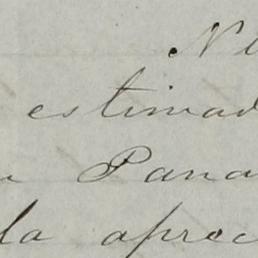 estimad
Pana
la aprec